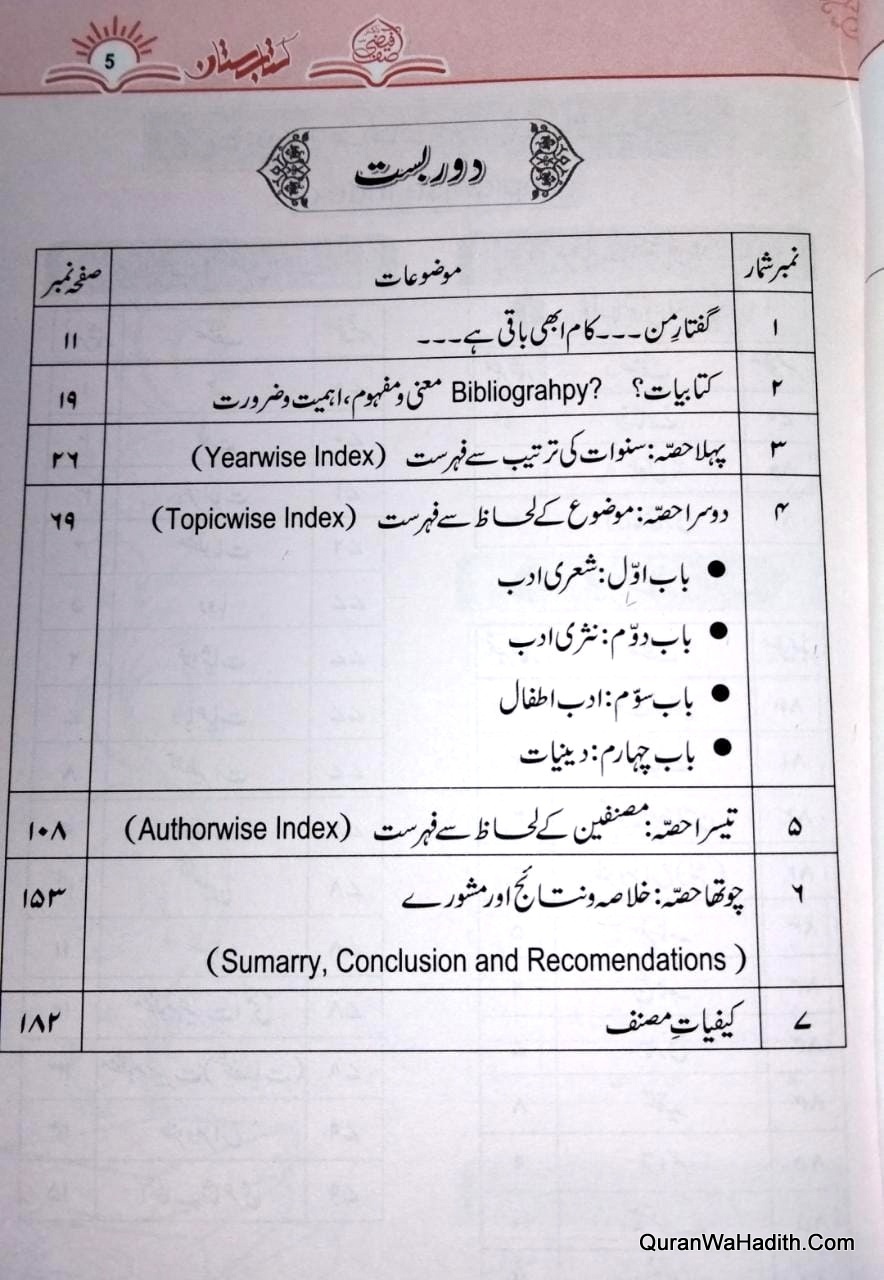 5 کتابستان
دور بست
نمبر شمار موضوعات صفحہ نمبر
۱ گفتارِ من ۔۔۔ کام ابھی باقی ہے ۔۔۔ ۱۱
۲ کتابیات؟ Bibliograhpy? معنی و مفہوم، اہمیت و ضرورت ۱۹
۳ پہلا حصّہ: سنوات کی ترتیب سے فہرست (Yearwise Index) ۲۶
۴ دوسرا حصّہ: موضوع کے لحاظ سے فہرست (Topicwise Index) ۶۹
● باب اوّل: شعری ادب
● باب دوّم: نثری ادب
● باب سوّم: ادب اطفال
● باب چہارم: دینیات
۵ تیسرا حصّہ: مصنفین کے لحاظ سے فہرست (Authorwise Index) ۱۰۸
۶ چوتھا حصّہ: خلاصہ و نتائج اور مشورے ۱۵۳
(Sumarry, Conclusion and Recomendations )
۷ کیفیاتِ مصنف ۱۸۲
QuranWaHadith.Com